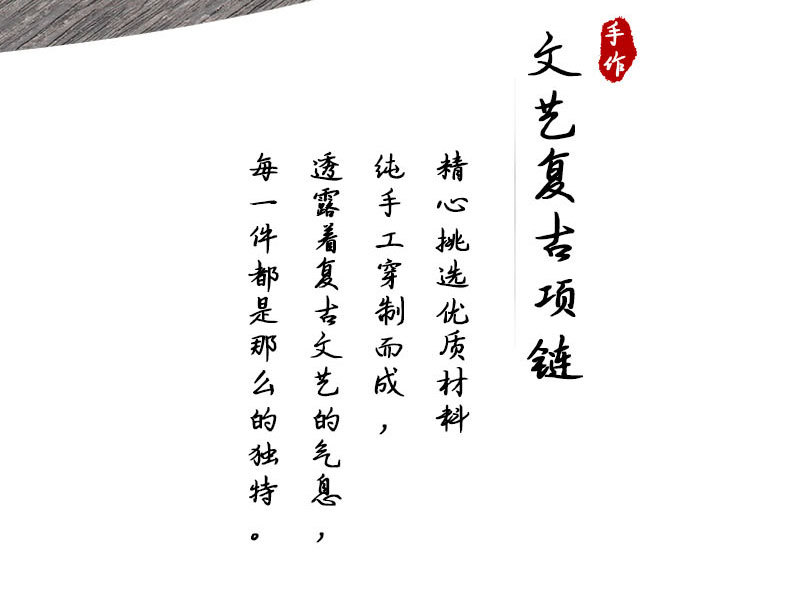 手作
文艺复古项链
精心挑选优质材料
纯手工穿制而成，
透露着复古文艺的气息，
每一件都是那么的独特。